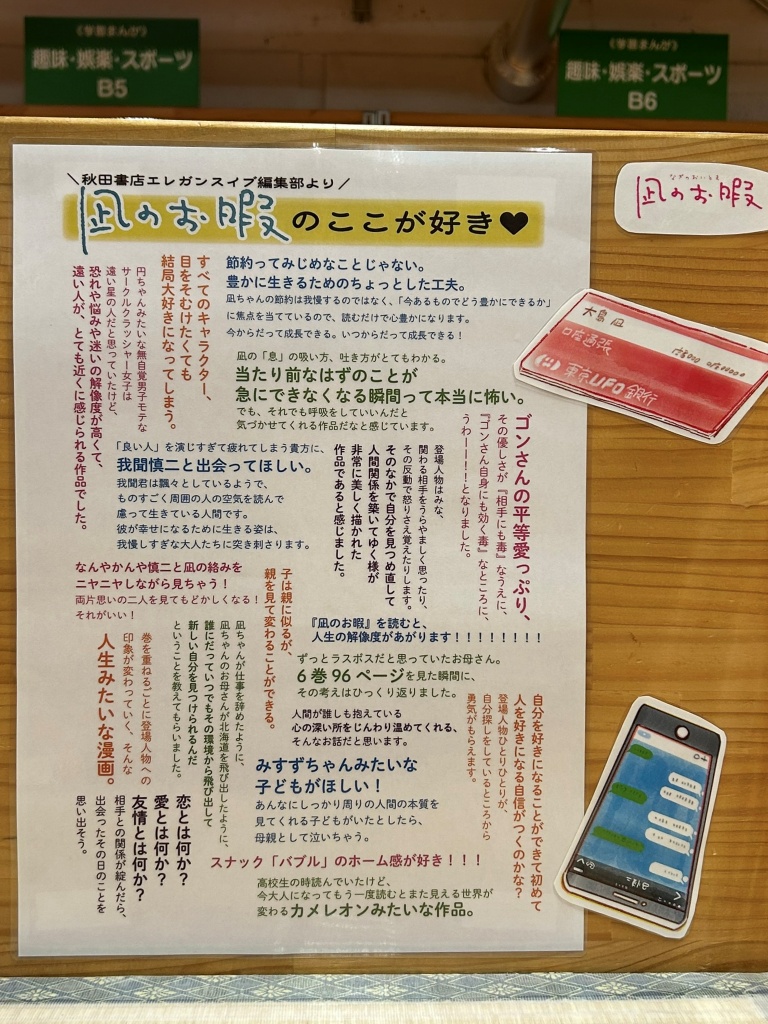 《学習まんが》
趣味・娯楽・スポーツ
B5
《学習まんが》
趣味・娯楽・スポーツ
B6
＼秋田書店エレガンスイブ編集部より／
凪のお暇のここが好き♥
なぎのおいとま
凪のお暇
節約ってみじめなことじゃない。
豊かに生きるためのちょっとした工夫。
凪ちゃんの節約は我慢するのではなく、「今あるものでどう豊かにできるか」
に焦点を当てているので、読むだけで心豊かになります。
今からだって成長できる。いつからだって成長できる！
すべてのキャラクター、
目をそむけたくても
結局大好きになってしまう。
円ちゃんみたいな無自覚男子モテな
サークルクラッシャー女子は
遠い星の人だと思っていたけど、
恐れや悩みや迷いの解像度が高くて、
遠い人が、とても近くに感じられる作品でした。
凪の「息」の吸い方、吐き方がとてもわかる。
当たり前なはずのことが
急にできなくなる瞬間って本当に怖い。
でも、それでも呼吸をしていいんだと
気づかせてくれる作品だなと感じています。
ゴンさんの平等愛っぷり、
その優しさが『相手にも毒』なうえに、
『ゴンさん自身にも効く毒』なところに、
うわーーー！！となりました。
「良い人」を演じすぎて疲れてしまう貴方に、
我聞慎二と出会ってほしい。
我聞君は飄々としているようで、
ものすごく周囲の人の空気を読んで
慮って生きている人間です。
彼が幸せになるために生きる姿は、
我慢しすぎな大人たちに突き刺さります。
登場人物はみな、
関わる相手をうらやましく思ったり、
その反動で怒りさえ覚えたりします。
そのなかで自分を見つめ直して
人間関係を築いてゆく様が
非常に美しく描かれた
作品であると感じました。
なんやかんや慎二と凪の絡みを
ニヤニヤしながら見ちゃう！
両片思いの二人を見てもどかしくなる！
それがいい！
子は親に似るが、
親を見て変わることができる。
凪ちゃんが仕事を辞めたように、
凪ちゃんのお母さんが北海道を飛び出したように、
誰にだっていつでもその環境から飛び出して
新しい自分を見つけられるんだ
ということを教えてもらいました。
『凪のお暇』を読むと、
人生の解像度があがります！！！！！！！！
ずっとラスボスだと思っていたお母さん。
6巻96ページを見た瞬間に、
その考えはひっくり返りました。
人間が誰しも抱えている
心の深い所をじんわり温めてくれる、
そんなお話だと思います。
巻を重ねるごとに登場人物への
印象が変わっていく、そんな
人生みたいな漫画。
自分を好きになることができて初めて
人を好きになる自信がつくのかな？
登場人物ひとりひとりが、
自分探しをしているところから
勇気がもらえます。
みすずちゃんみたいな
子どもがほしい！
あんなにしっかり周りの人間の本質を
見てくれる子どもがいたとしたら、
母親として泣いちゃう。
恋とは何か？
愛とは何か？
友情とは何か？
相手との関係が綻んだら、
出会ったその日のことを
思い出そう。
スナック「バブル」のホーム感が好き！！！
高校生の時読んでいたけど、
今大人になってもう一度読むとまた見える世界が
変わるカメレオンみたいな作品。
大島 凪
口座通帳
東京UFO銀行